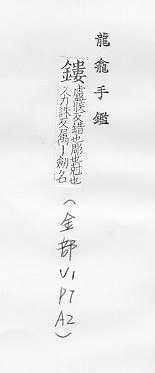 龍龕手鑑
鏤
盧候反錯也彫也尅也
又力誅反屬丨劒名
(金部V1
P7
A2)